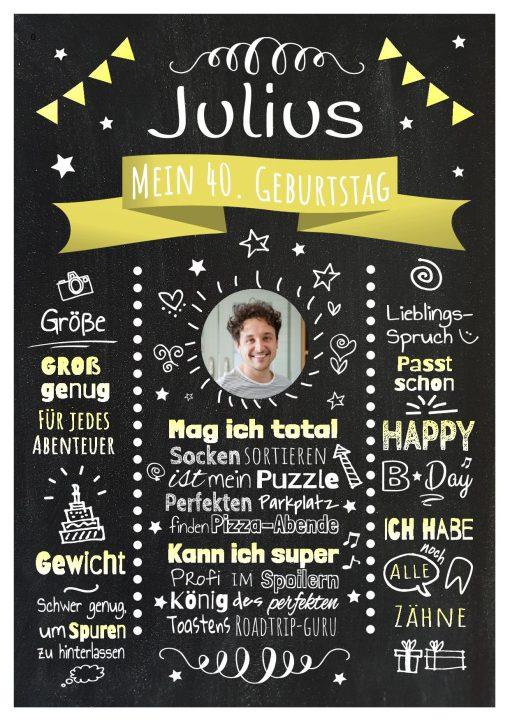 Julius
Mein 40. Geburtstag
Größe
GROß
genug
FÜR JEDES
ABENTEUER
Gewicht
Schwer genug,
um Spuren
zu hinterlassen
Mag ich total
Socken SORTIEREN
ist mein Puzzle
Perfekten Parkplatz
finden Pizza-Abende
Kann ich super
Profi im Spoilern
König des perfekten
Toastens Roadtrip-Guru
Lieblings-
Spruch
Passt
schon
HAPPY
B-Day
ICH HABE
noch
ALLE
ZÄHNE